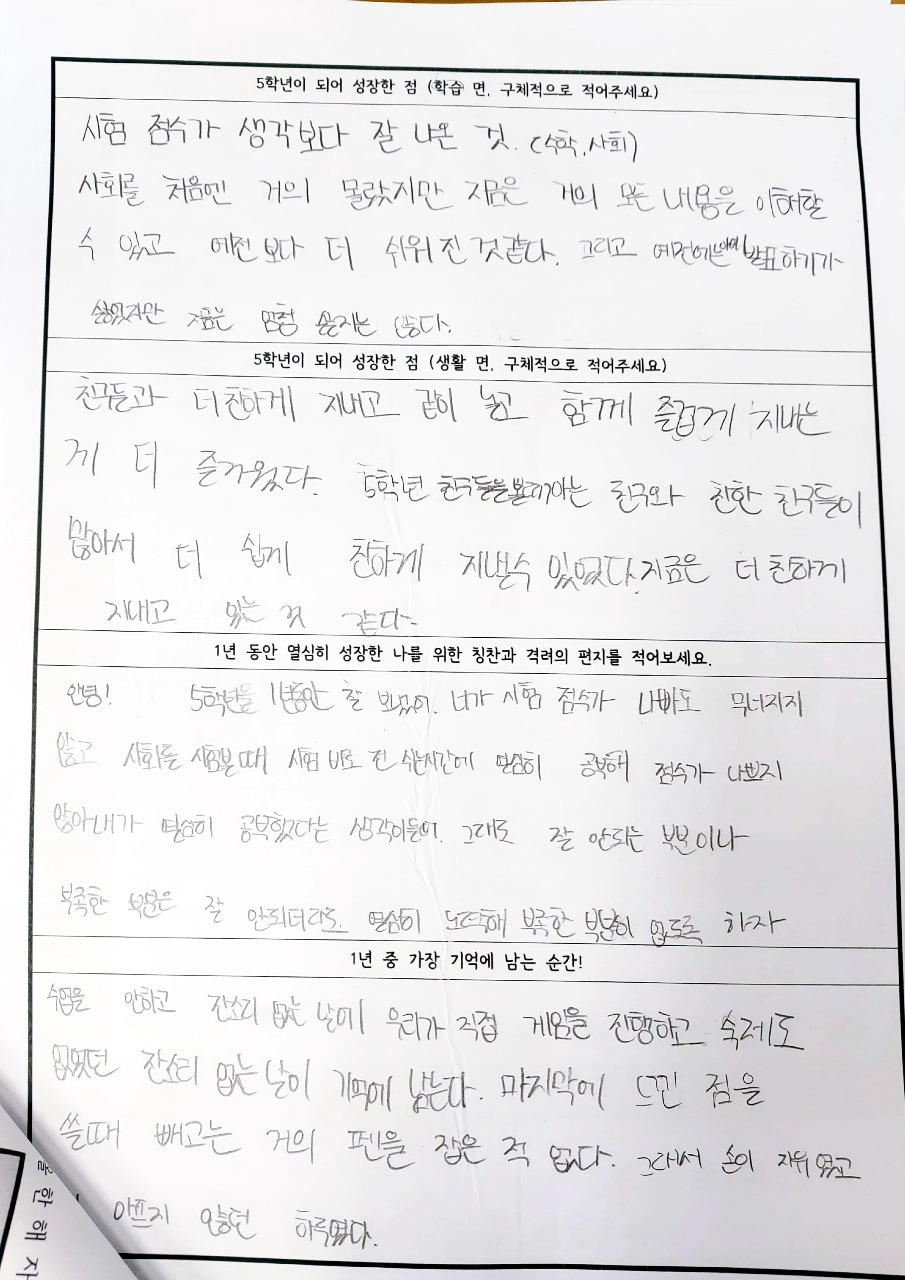 5학년이 되어 성장한 점 (학습 면, 구체적으로 적어주세요)
시험 점수가 생각보다 잘 나온 것. (수학, 사회)
사회를 처음엔 거의 몰랐지만 지금은 거의 모든 내용을 이해할
수 있고 예전보다 더 쉬워진것같다. 그리고 예전에는 발표하기가
싫었지만 지금은 엄청 싫지는 않다.
5학년이 되어 성장한 점 (생활 면, 구체적으로 적어주세요)
친구들과 더친하게 지내고 같이 놀고 함께 즐겁게 지내는
게 더 즐거웠다. 5학년 친구들을 아는 친구와 친한 친구들이
많아서 더 쉽게 친하게 지낼수 있었다. 지금은 더 친하게
지내고 있는 것 같다.
1년 동안 열심히 성장한 나를 위한 칭찬과 격려의 편지를 적어보세요.
안녕! 5학년을 1년동안 잘 보냈어. 너가 시험 점수가 나빠도 무너지지
않고 사회를 시험볼때 시험 바로 전 쉬는시간에 열심히 공부해 점수가 나쁘지
않아 내가 열심히 공부했다는 생각이들어. 그대로 잘 안되는 부분이나
부족한 부분은 잘 안되더라도 열심히 노력해 부족한 부분이 없도록 하자
1년 중 가장 기억에 남는 순간!
수업을 안하고 잔소리 없는 날에 우리가 직접 게임을 진행하고 숙제도
없었던 잔소리 없는 날이 기억에 남는다. 마지막에 느낀 점을
쓸때 빼고는 거의 펜을 잡은 적 없다. 그래서 손이 자유였고
아프지 않던 하루였다.
을 한 해 자